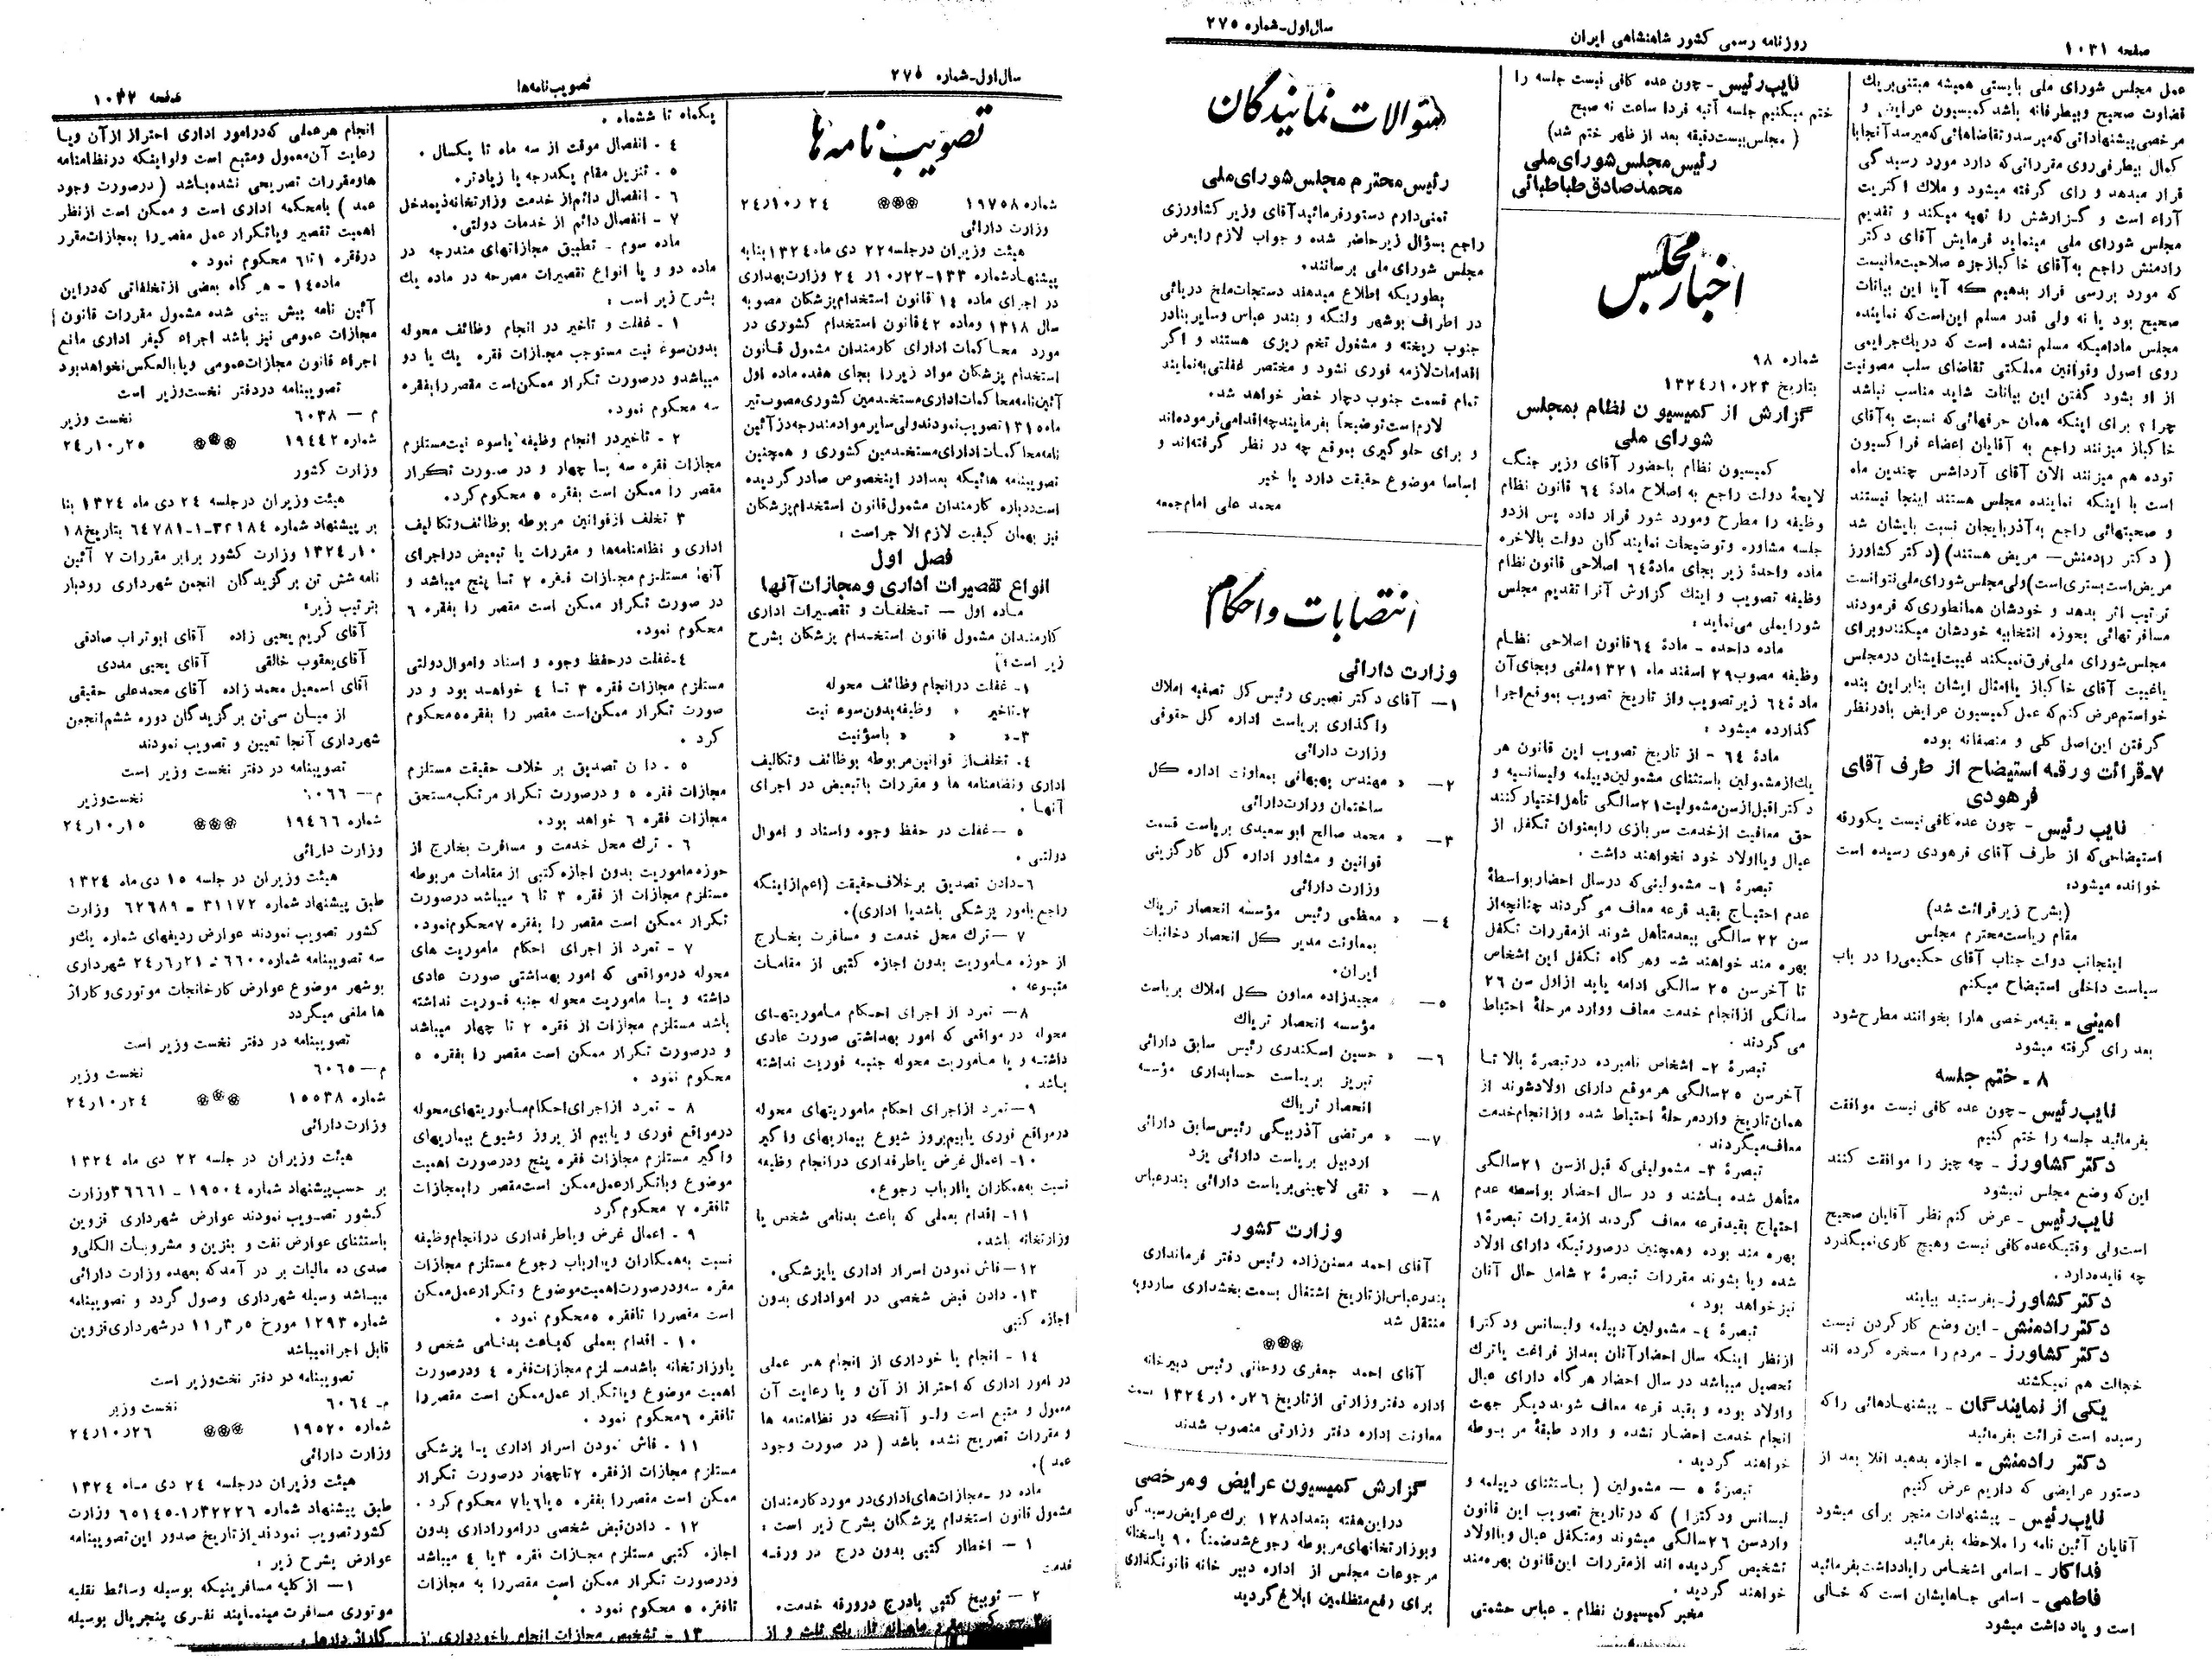 صفحه ۱۰۳۱
روزنامه رسمی کشور شاهنشاهی ایران
سال اول-شماره ۲۷۵
عمل مجلس شورای ملی بایستی همیشه مبتنی بریك
قضاوت صحیح و بیطرفانه باشد کمیسیون عرایض و
مرخصی پیشنهاداتی که میرسد و تقاضاهائی که میرسد آنجا با
کمال بیطرفی روی مقرراتی که دارد مورد رسیدگی
قرار میدهد و رای گرفته میشود و ملاك اکثریت
آراء است و گزارشش را تهیه میکند و تقدیم
مجلس شورای ملی مینماید فرمایش آقای دکتر
رادمنش راجع به آقای خاکباز جزء صلاحیت مانیست
که مورد بررسی قرار بدهیم که آیا این بیانات
صحیح بود یا نه ولی قدر مسلم این است که نماینده
مجلس مادامیکه مسلم نشده است که دریك جرایمی
روی اصول وقوانین مملکتی تقاضای سلب مصونیت
از او بشود گفتن این بیانات شاید مناسب نباشد
چرا؟ برای اینکه همان حرفهائی که نسبت به آقای
خاکباز میزنند راجع به آقایان اعضاء فراکسیون
توده هم میزنند الان آقای آرداشس چندین ماه
است با اینکه نماینده مجلس هستند اینجا نیستند
و صحبتهائی راجع به آذربایجان نسبت بایشان شد
( دکتر رادمنش— مریض هستند) (دکتر کشاورز
مریض است بستری است) ولی مجلس شورای ملی نتوانست
ترتیب اثر بدهد و خودشان همانطوری که فرمودند
مسافرتهائی بحوزه انتخابیه خودشان میکنند و برای
مجلس شورای ملی فرق نمیکند غیبت ایشان در مجلس
یا غیبت آقای خاکباز یا امثال ایشان بنابراین بنده
خواستم عرض کنم که عمل کمیسیون عرایض با در نظر
گرفتن این اصل کلی و منصفانه بوده
۷-قرائت ورقه استیضاح از طرف آقای
فرهودی
نایب رئیس - چون عده کافی نیست یکورقه
استیضاحی که از طرف آقای فرهودی رسیده است
خوانده میشود:
(بشرح زیر قرائت شد)
مقام ریاست محترم مجلس
اینجانب دولت جناب آقای حکیمی را در باب
سیاست داخلی استیضاح میکنم
امینی - بقیه مرخصی هارا بخوانند مطرح شود
بعد رای گرفته میشود
۸ - ختم جلسه
نایب رئیس - چون عده کافی نیست موافقت
بفرمائید جلسه را ختم کنیم
دکتر کشاورز - چه چیز را موافقت کنند
این که وضع مجلس نمیشود
نایب رئیس - عرض کنم نظر آقایان صحیح
است ولی وقتیکه عده کافی نیست وهیچ کاری نمیگذرد
چه فایده دارد.
دکتر کشاورز-بفرستید بیایند
دکتر رادمنش - این وضع کار کردن نیست
دکتر کشاورز - مردم را مسخره کرده اند
خجالت هم نمیکشند
یکی از نمایندگان - پیشنهادهائی را که
رسیده است قرائت بفرمائید
دکتر رادمنش - اجازه بدهید اقلا بعد از
دستور عرایضی که داریم عرض کنیم
نایب رئیس - پیشنهادات منجر برای میشود
آقایان آئین نامه را ملاحظه بفرمائید
فداکار - اسامی اشخاص را یادداشت بفرمائید
فاطمی - اسامی جاهایشان است که خالی
است و یاد داشت میشود
نایب رئیس - چون عده کافی نیست جلسه را
ختم میکنیم جلسه آتیه فردا ساعت نه صبح
( مجلس بیست دقیقه بعد از ظهر ختم شد)
رئیس مجلس شورای ملی
محمد صادق طباطبائی
اخبار مجلس
شماره ۹۸
بتاریخ ۱۳۲۴/۱۰/۲۳
گزارش از کمیسیون نظام بمجلس
شورای ملی
کمیسیون نظام با حضور آقای وزیر جنگ
لایحهٔ دولت راجع به اصلاح مادهٔ ۶۴ قانون نظام
وظیفه را مطرح و مورد شور قرار داده پس از دو
جلسه مشاوره و توضیحات نمایندگان دولت بالاخره
ماده واحدهٔ زیر بجای مادهٔ ۶۴ اصلاحی قانون نظام
وظیفه تصویب و اینك گزارش آنرا تقدیم مجلس
شورایملی می نماید:
ماده واحده - مادهٔ ۶۴ قانون اصلاحی نظام
وظیفه مصوب ۲۹ اسفند ماه ۱۳۲۱ ملغی و بجای آن
مادهٔ ۶۴ زیر تصویب و از تاریخ تصویب بموقع اجرا
گذارده میشود:
مادهٔ ۶۴ - از تاریخ تصویب این قانون هر
یك از مشمولین باستثنای مشمولین دیپلمه ولیسانسیه و
دکتر اقبل از سن مشمولیت ۲۱ سالگی تأهل اختیار کنند
حق معافیت از خدمت سربازی را بعنوان تکفل از
عیال ویا اولاد خود نخواهند داشت.
تبصرهٔ ۱- مشمولینی که در سال احضار بواسطهٔ
عدم احتیاج بقید قرعه معاف می گردند چنانچه از
سن ۲۲ سالگی ببعد متأهل شوند از مقررات تکفل
بهره مند خواهند شد و هر گاه تکفل این اشخاص
تا آخر سن ۲۵ سالگی ادامه یابد از اول سن ۲۶
سالگی از انجام خدمت معاف و وارد مرحلهٔ احتیاط
می گردند.
تبصرهٔ ۲- اشخاص نامبرده در تبصرهٔ بالا تا
آخر سن ۲۵ سالگی هر موقع دارای اولاد شوند از
همان تاریخ وارد مرحلهٔ احتیاط شده و از انجام خدمت
معاف میگردند.
تبصرهٔ ۳- مشمولینی که قبل از سن ۲۱ سالگی
متأهل شده باشند و در سال احضار بواسطه عدم
احتیاج بقید قرعه معاف گردند از مقررات تبصرهٔ ۱
بهره مند بوده و همچنین در صورتیکه دارای اولاد
شده ویا بشوند مقررات تبصرهٔ ۲ شامل حال آنان
نیز خواهد بود.
تبصرهٔ ۴- مشمولین دیپلمه ولیسانس ودکترا
از نظر اینکه سال احضار آنان بعد از فراغت یا ترك
تحصیل میباشد در سال احضار هر گاه دارای عیال
و اولاد بوده و بقید قرعه معاف شوند دیگر جهت
انجام خدمت احضار نشده و وارد طبقهٔ مربوطه
خواهند گردید.
تبصرهٔ ۵ — مشمولین ( باستثنای دیپلمه و
لیسانس ودکترا ) که در تاریخ تصویب این قانون
وارد سن ۲۶ سالگی میشوند و متکفل عیال ویا اولاد
تشخیص گردیده اند از مقررات این قانون بهره مند
خواهند گردید.
مخبر کمیسیون نظام - عباس حشمتی
سئوالات نمایندگان
رئیس محترم مجلس شورای ملی
تمنی دارم دستور فرمائید آقای وزیر کشاورزی
راجع بسؤال زیر حاضر شده و جواب لازم را بعرض
مجلس شورای ملی برسانند.
بطوریکه اطلاع میدهند دستجات ملخ دریائی
در اطراف بوشهر ولنگه و بندر عباس وسایر بنادر
جنوب ریخته و مشغول تخم ریزی هستند و اگر
اقدامات لازمه فوری نشود و مختصر غفلتی به نمایند
تمام قسمت جنوب دچار خطر خواهد شد.
لازم است توضیحاً بفرمایند چه اقدامی فرموده اند
و برای جلوگیری بموقع چه در نظر گرفته اند و
اساسا موضوع حقیقت دارد یا خیر
محمد علی امام جمعه
انتصابات و احکام
وزارت دارائی
۱— آقای دکتر نصیری رئیس کل تصفیه املاك
واگذاری بریاست اداره کل حقوقی
وزارت دارائی
۲— » مهندس بهبهانی بمعاونت اداره کل
ساختمان وزارت دارائی
۳— » محمد صالح ابو سعیدی بریاست قسمت
قوانین و مشاور اداره کل کارگزینی
وزارت دارائی
۴— » معظمی رئیس مؤسسه انحصار تریاك
بمعاونت مدیر کل انحصار دخانیات
ایران.
۵— » مجیدزاده معاون کل املاك بریاست
مؤسسه انحصار تریاك
۶— » حسین اسکندری رئیس سابق دارائی
تبریز بریاست حسابداری مؤسسه
انحصار تریاك
۷— » مرتضی آذربیگی رئیس سابق دارائی
اردبیل بریاست دارائی یزد
۸— » تقی لاچینی بریاست دارائی بندرعباس
وزارت کشور
آقای احمد مسنن زاده رئیس دفتر فرمانداری
بندر عباس از تاریخ اشتغال بسمت بخشداری ساردویه
منتقل شد
آقای احمد جعفری روحانی رئیس دبیرخانه
اداره دفتر وزارتی از تاریخ ۱۳۲۴/۱۰/۲۶ بسمت
معاونت اداره دفتر وزارتی منصوب شدند
گزارش کمیسیون عرایض و مرخصی
در این هفته بتعداد ۱۲۸ برك عرایض رسیدگی
و بوزارتخانهای مربوطه رجوع شد ضمناً ۹۰ پاسخنامه
مرجوعات مجلس از اداره دبیر خانه قانونگذاری
برای رفع متظلمین ابلاغ گردید
سال اول-شماره ۲۷۵
تصویب نامه ها
صفحه ۱۰۳۲
تصویب نامه ها
شماره ۱۹۷۵۸ ۲۴/۱۰/۲۴
وزارت دارائی
هیئت وزیران در جلسه ۲۲ دی ماه ۱۳۲۴ بنا به
پیشنهاد شماره ۱۳۳-۲۴/۱۰/۲۲ وزارت بهداری
در اجرای ماده ۱۴ قانون استخدام پزشکان مصوبه
سال ۱۳۱۸ و ماده ۴۲ قانون استخدام کشوری در
مورد محاکمات اداری کارمندان مشمول قانون
استخدام پزشکان مواد زیر را بجای هفده ماده اول
آئین نامه محاکمات اداری مستخدمین کشوری مصوب تیر
ماه ۱۳۱۵ تصویب نمودند ولی سایر مواد مندرجه در آئین
نامه محاکمات اداری مستخدمین کشوری و همچنین
تصویبنامه هائیکه بعدا در اینخصوص صادر گردیده
است درباره کارمندان مشمول قانون استخدام پزشکان
نیز بهمان کیفیت لازم الاجراست:
فصل اول
انواع تقصیرات اداری و مجازات آنها
ماده اول — تخلفات و تقصیرات اداری
کارمندان مشمول قانون استخدام پزشکان بشرح
زیر است:
۱- غفلت در انجام وظائف محوله
۲-تاخیر » وظیفه بدون سوء نیت
۳-» » » با سؤنیت
۴- تخلف از قوانین مربوطه بوظائف وتکالیف
اداری ونظامنامه ها و مقررات یا تبعیض در اجرای
آنها.
۵ —غفلت در حفظ وجوه واسناد و اموال
دولتی.
۶-دادن تصدیق بر خلاف حقیقت (اعم از اینکه
راجع بامور پزشکی باشد یا اداری).
۷ —ترك محل خدمت و مسافرت بخارج
از حوزه ماموریت بدون اجازه کتبی از مقامات
متبوعه.
۸- تمرد از اجرای احکام ماموریتهای
محوله در مواقعی که امور بهداشتی صورت عادی
داشته و یا ماموریت محوله جنبه فوریت نداشته
باشد.
۹—تمرد از اجرای احکام ماموریتهای محوله
در مواقع فوری یا بیم بروز شیوع بیماریهای واگیر
۱۰- اعمال غرض یا طرفداری در انجام وظیفه
نسبت به همکاران یا ارباب رجوع.
۱۱- اقدام بعملی که باعث بدنامی شخص یا
وزارتخانه باشد.
۱۲—فاش نمودن اسرار اداری یا پزشکی.
۱۳- دادن قبض شخصی در امور اداری بدون
اجازه کتبی
۱۴ - انجام یا خودداری از انجام هر عملی
در امور اداری که احتراز از آن و یا رعایت آن
معمول و متبع است ولو آنکه در نظامنامه ها
و مقررات تصریح نشده باشد ( در صورت وجود
عمد ).
ماده دو -مجازات های اداری در مورد کارمندان
مشمول قانون استخدام پزشکان بشرح زیر است:
۱ — اخطار کتبی بدون درج در ورقه
خدمت
۲ — توبیخ کتبی با درج در ورقه خدمت.
یکماه تا ششماه.
۴ - انفصال موقت از سه ماه تا یکسال.
۵ - تنزیل مقام یکدرجه یا زیادتر.
۶ - انفصال دائم از خدمت وزارتخانه ذیمدخل
۷ - انفصال دائم از خدمات دولتی.
ماده سوم - تطبیق مجازاتهای مندرجه در
ماده دو و یا انواع تقصیرات مصرحه در ماده یك
بشرح زیر است:
۱ - غفلت و تاخیر در انجام وظائف محوله
بدون سوء نیت مستوجب مجازات فقره یك یا دو
میباشد و در صورت تکرار ممکن است مقصر را بفقره
سه محکوم نمود.
۲ - تاخیر در انجام وظیفه یا سوء نیت مستلزم
مجازات فقره سه یا چهار و در صورت تکرار
مقصر را ممکن است بفقره ۵ محکوم کرد.
۳ تخلف از قوانین مربوطه بوظائف وتکالیف
اداری و نظامنامه ها و مقررات یا تبعیض در اجرای
آنها مستلزم مجازات فقره ۲ تا پنج میباشد و
در صورت تکرار ممکن است مقصر را بفقره ۶
محکوم نمود.
۴-غفلت در حفظ وجوه و اسناد واموال دولتی
مستلزم مجازات فقره ۳ تا ۴ خواهد بود و در
صورت تکرار ممکن است مقصر را بفقره ۵ محکوم
کرد.
۵ - دادن تصدیق بر خلاف حقیقت مستلزم
مجازات فقره ۵ و در صورت تکرار مرتکب مستحق
مجازات فقره ۶ خواهد بود.
۶ - ترك محل خدمت و مسافرت بخارج از
حوزه ماموریت بدون اجازه کتبی از مقامات مربوطه
مستلزم مجازات از فقره ۳ تا ۶ میباشد در صورت
تکرار ممکن است مقصر را بفقره ۷ محکوم نمود.
۷ - تمرد از اجرای احکام ماموریت های
محوله در مواقعی که امور بهداشتی صورت عادی
داشته و یا ماموریت محوله جنبه فوریت نداشته
باشد مستلزم مجازات از فقره ۲ تا چهار میباشد
و در صورت تکرار ممکن است مقصر را بفقره ۵
محکوم نمود.
۸ - تمرد از اجرای احکام ماموریتهای محوله
در مواقع فوری و یا بیم از بروز وشیوع بیماریهای
واگیر مستلزم مجازات فقره پنج و در صورت اهمیت
موضوع و یا تکرار عمل ممکن است مقصر را بمجازات
تا فقره ۷ محکوم کرد
۹ - اعمال غرض ویا طرفداری در انجام وظیفه
نسبت به همکاران ویا ارباب رجوع مستلزم مجازات
فقره سه و در صورت اهمیت موضوع و تکرار عمل ممکن
است مقصر را تا فقره ۵ محکوم نمود.
۱۰ - اقدام بعملی که باعث بدنامی شخص و
یا وزارتخانه باشد مستلزم مجازات فقره ۴ و در صورت
اهمیت موضوع ویا تکرار عمل ممکن است مقصر را
تا فقره ۶ محکوم نمود.
۱۱ - فاش نمودن اسرار اداری یا پزشکی
مستلزم مجازات از فقره ۲ تا چهار در صورت تکرار
ممکن است مقصر را بفقره ۵ یا ۶ یا ۷ محکوم کرد.
۱۲ - دادن قبض شخصی در امور اداری بدون
اجازه کتبی مستلزم مجازات فقره ۳ یا ۴ میباشد
و در صورت تکرار ممکن است مقصر را به مجازات
تا فقره ۵ محکوم نمود.
۱۳ - تشخیص مجازات انجام یا خودداری از
انجام هر عملی که در امور اداری احتراز از آن ویا
رعایت آن معمول و متبع است ولو اینکه در نظامنامه
ها و مقررات تصریحی نشده باشد ( در صورت وجود
عمد ) با محکمه اداری است و ممکن است از نظر
اهمیت تقصیر ویا تکرار عمل مقصر را بمجازات مقرر
در فقره ۱ تا ۶ محکوم نمود.
ماده ۱۴ - هر گاه بعضی از تخلفاتی که در این
آئین نامه پیش بینی شده مشمول مقررات قانون
مجازات عمومی نیز باشد اجراء کیفر اداری مانع
اجراء قانون مجازات عمومی ویا بالعکس نخواهد بود
تصویبنامه در دفتر نخست وزیر است
م — ۶۰۳۸ نخست وزیر
شماره ۱۹۴۴۲ ۲۴/۱۰/۲۵
وزارت کشور
هیئت وزیران در جلسه ۲۴ دی ماه ۱۳۲۴ بنا
بر پیشنهاد شماره ۳۲۱۸۴-۱-۶۴۷۸۱ بتاریخ ۱۸
۱۰/۱۳۲۴ وزارت کشور برابر مقررات ۷ آئین
نامه شش تن برگزیدگان انجمن شهرداری رودبار
بترتیب زیر:
آقای کریم یحیی زاده آقای ابوتراب صادقی
آقای یعقوب خالقی آقای یحیی مددی
آقای اسمعیل محمد زاده آقای محمدعلی حقیقی
از میان سی تن برگزیدگان دوره ششم انجمن
شهرداری آنجا تعیین و تصویب نمودند
تصویبنامه در دفتر نخست وزیر است
نخست وزیر
شماره ۱۹۴۶۶ ۲۴/۱۰/۱۵
وزارت دارائی
هیئت وزیران در جلسه ۱۵ دی ماه ۱۳۲۴
طبق پیشنهاد شماره ۳۱۱۷۲ - ۶۲۶۸۹ وزارت
کشور تصویب نمودند عوارض ردیفهای شماره یك و
سه تصویبنامه شماره ۶۶۰۰ - ۲۴/۶/۲۱ شهرداری
بوشهر موضوع عوارض کارخانجات موتوری و کاراژ
ها ملغی میگردد
تصویبنامه در دفتر نخست وزیر است
م—۶۰۶۵ نخست وزیر
شماره ۱۵۵۳۸ ۲۴/۱۰/۲۴
وزارت دارائی
هیئت وزیران در جلسه ۲۲ دی ماه ۱۳۲۴
بر حسب پیشنهاد شماره ۱۹۵۰۴ - ۳۶۶۶۱ وزارت
کشور تصویب نمودند عوارض شهرداری قزوین
باستثنای عوارض نفت و بنزین و مشروبات الکلی و
صدی ده مالیات بر در آمد که بعهده وزارت دارائی
میباشد وسیله شهرداری وصول گردد و تصویبنامه
شماره ۱۲۹۳ مورخ ۱۱/۳/۵ در شهرداری قزوین
قابل اجرا نمیباشد
تصویبنامه در دفتر نخت وزیر است
م- ۶۰۶۴ نخست وزیر
شماره ۱۹۵۲۰ ۲۴/۱۰/۲۶
وزارت دارائی
هیئت وزیران در جلسه ۲۴ دی ماه ۱۳۲۴
طبق پیشنهاد شماره ۳۲۲۲۶/۱-۶۵۱۴۵ وزارت
کشور تصویب نمودند از تاریخ صدور این تصویبنامه
عوارض بشرح زیر:
۱— از کلیه مسافرینیکه بوسیله وسائط نقلیه
موتوری مسافرت مینمایند نفری پنجریال بوسیله